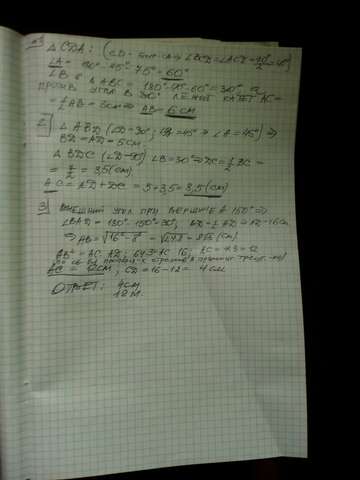 △ CDA: (CD - бис-са ⇒ ∠BCD = ∠ACD = 90°/2 = 45°)
∠A = 180° - 45° - 75° = 60°
∠B в △ ABC = 180° - 90° - 60° = 30°, а
против угла в 30° лежит катет AC =
= 1/2 AB = 3см ⇒ AB = 6 см
2
△ ABD (∠D = 90°; ∠B = 45° ⇒ ∠A = 45°) ⇒
BD = AD = 5 см;
△ BDC (∠D - 90°) ∠B = 30° ⇒ DC = 1/2 BC =
= 7/2 = 3,5 (см)
AC = AD + DC = 5 + 3,5 = 8,5 (см)
3 Внешний угол при вершине A 150° ⇒
∠BAD = 180° - 150° = 30°;
⇒ AB = √16² - 8² =
AB² = AC · AD; 64·3 = AC · 16; AC = 4·3 = 12
AC = 12см; CD = 16 - 12 = 4 см
Ответ: 4см
12м